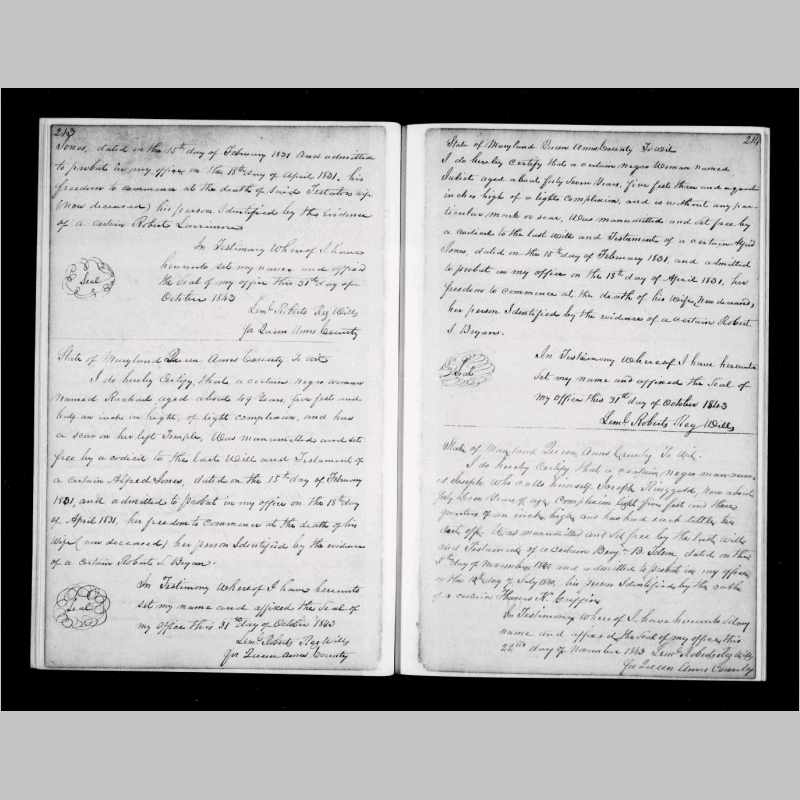 213
Jones, dated on the 15th day of February 1831 and admitted
to probat in my office on the 18th day of April 1831, his
freedom to commence at the death of said Testators wife
(now deceased) his person Identified by the evidence
of a certain Robert
In Testimony Whereof I have
hereunto set my name and affixed
the Seal of my office this 31st day of
October 1843
Seal
Leml Roberts Reg Wills
for Queen Anns County
State of Maryland Queen Anns County To Wit
I do hereby Certify, that a certain negro woman
named Rachael aged about 49 Years, five feet and
an inch in hight, of light complexion, and has
a scar on her left Temple, Was manumitted and set
free by a codicil to the last Will and Testament of
a certain Alfred Jones, dated on the 15th day of February
1831, and admitted to probat in my office on the 18th day
of April 1831, her freedom to commence at the death of his
Wife (now deceased) her person Identified by the evidence
of a certain Robert S. Bryan.
In Testimony Whereof I have hereunto
set my name and affixed the Seal of
my office this 31st day of October 1843
Seal
Leml Roberts Reg Wills
for Queen Anns County
214
State of Maryland Queen Anns County To wit
I do hereby certify that a certain negro Woman named
aged about forty Seven Years, five feet three and a quarter
inches high of a light Complexion, and is without any par-
ticular mark or scar, Was manumitted and set free by
a codicil to the last Will and Testament of a certain Alfred
Jones, dated on the 15th day of February 1831, and admitted
to probat in my office on the 18th day of April 1831, her
freedom to commence at the death of his Wife, (now deceased,)
her person Identified by the evidence of a certain Robert
S. Bryan.
In Testimony Whereof I have hereunto
set my name and affixed the Seal of
my office this 31st day of October 1843
Seal
Leml Roberts Reg Wills
State of Maryland Queen Anns County To Wit.
I do hereby Certify, that a certain negro man nam-
ed Joseph Who calls himself Joseph Ringgold, now about
forty Years of age, Complexion light five feet and three
quarters of an inch high, and has had each little toe
off. Was manumitted and set free by the last Will
and Testament of a certain Benj. B. dated on the
day of November and admitted to probat in my office
on the day of July his person Identified by the oath
of a certain Thomas K.
In Testimony Whereof I have hereunto set my
name and affixed the Seal of my office this
22nd day of November 1843 Leml Roberts Reg Wills
for Queen Anns County